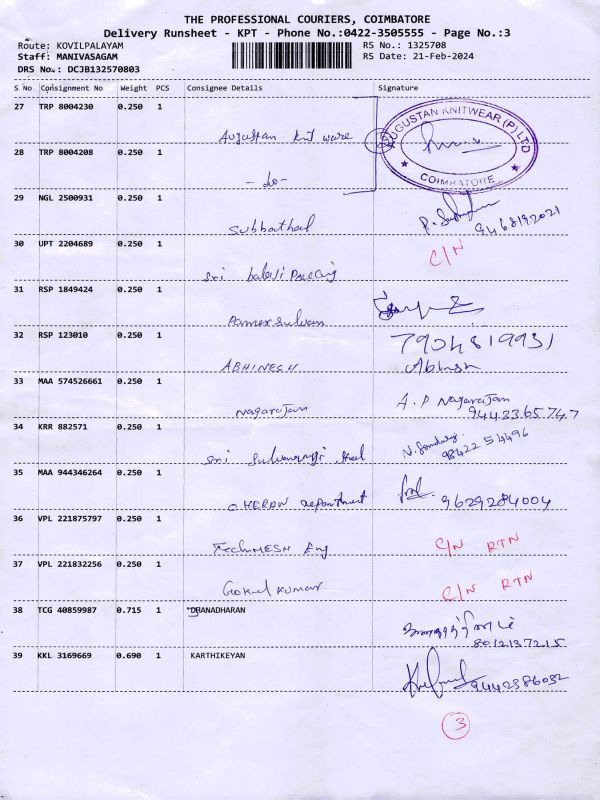 THE PROFESSIONAL COURIERS, COIMBATORE
Delivery Runsheet - KPT - Phone No.:0422-3505555 - Page No.:3
Route: KOVILPALAYAM RS No.: 1325708
Staff: MANIVASAGAM RS Date: 21-Feb-2024
DRS No.: DCJB132570803
S No Consignment No Weight PCS Consignee Details Signature
27 TRP 8004230 0.250 1
Augustan knit ware
AUGUSTAN KNITWEAR (P) LTD
COIMBATORE
28 TRP 8004208 0.250 1
-do-
29 NGL 2500931 0.250 1
Subbathal
9468192021
30 UPT 2204689 0.250 1
C/N
Sri balaji
31 RSP 1849424 0.250 1
32 RSP 123010 0.250 1
7904819931
ABHINESH
33 MAA 574526661 0.250 1
Nagarajan
A.P Nagarajan
9443365747
34 KRR 882571 0.250 1
Sri
98422 54496
35 MAA 944346264 0.250 1
CHERAN Department
9629284004
36 VPL 221875797 0.250 1
TechMESH Eng
C/N RTN
37 VPL 221832256 0.250 1
Gokul kumar
C/N RTN
38 TCG 40859987 0.715 1 DHANADHARAN
8012137215
39 KKL 3169669 0.690 1 KARTHIKEYAN
9442386032
3